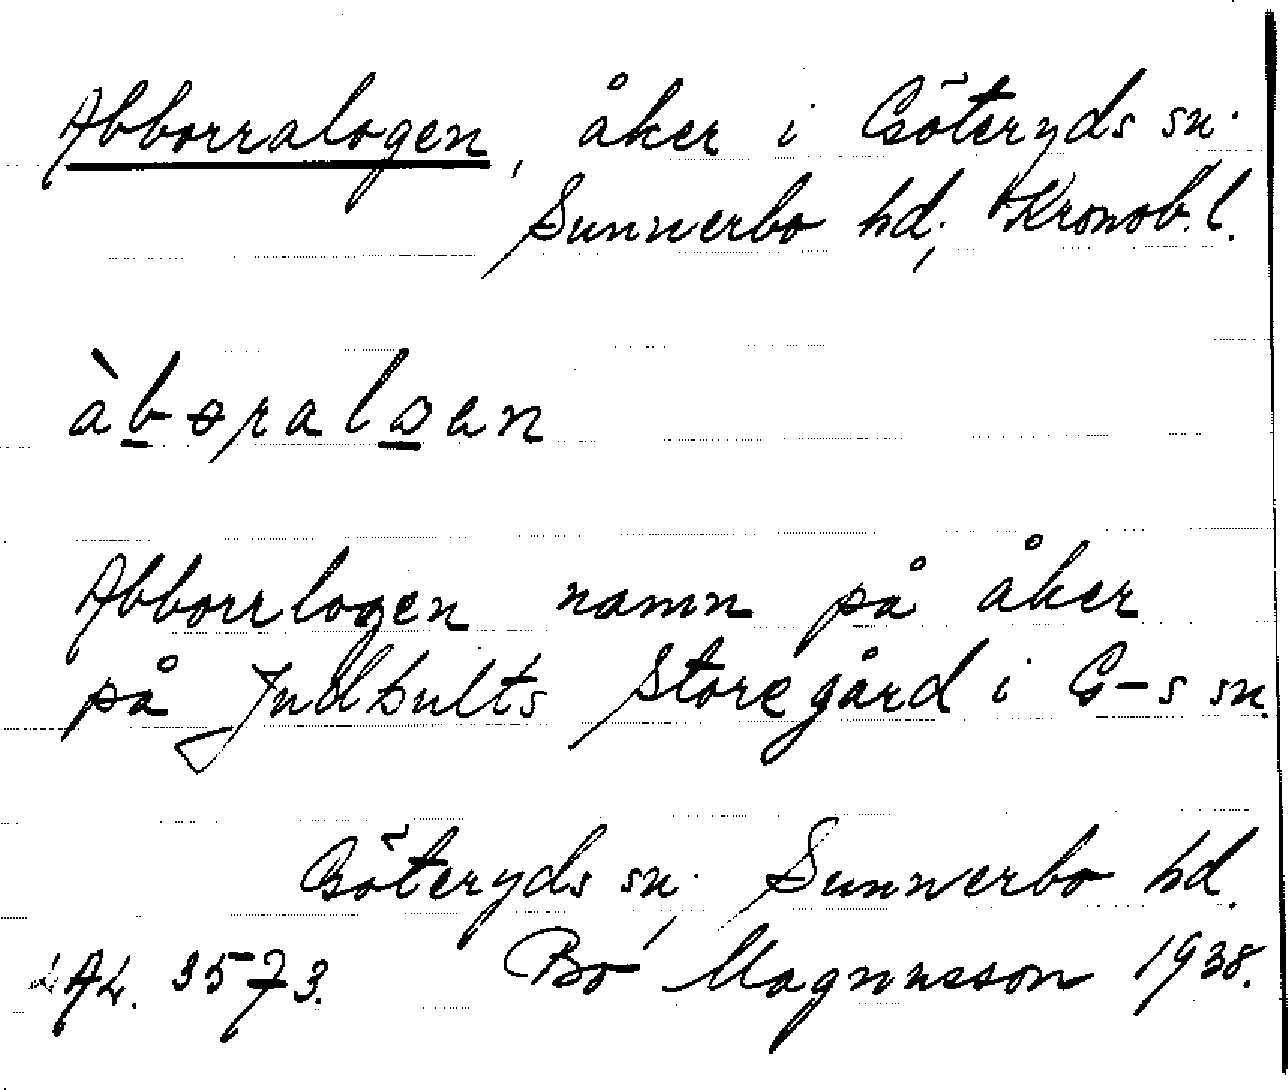 Abborralogen, åker i Göteryds sn.
Sunnerbo hd, Kronob. l.
àbɵralɷen
Abborrlogen namn på åker
på Judhults Storegård i G-s sn.
Göteryds sn, Sunnerbo hd.
3573. Bo Magnusson 1938.